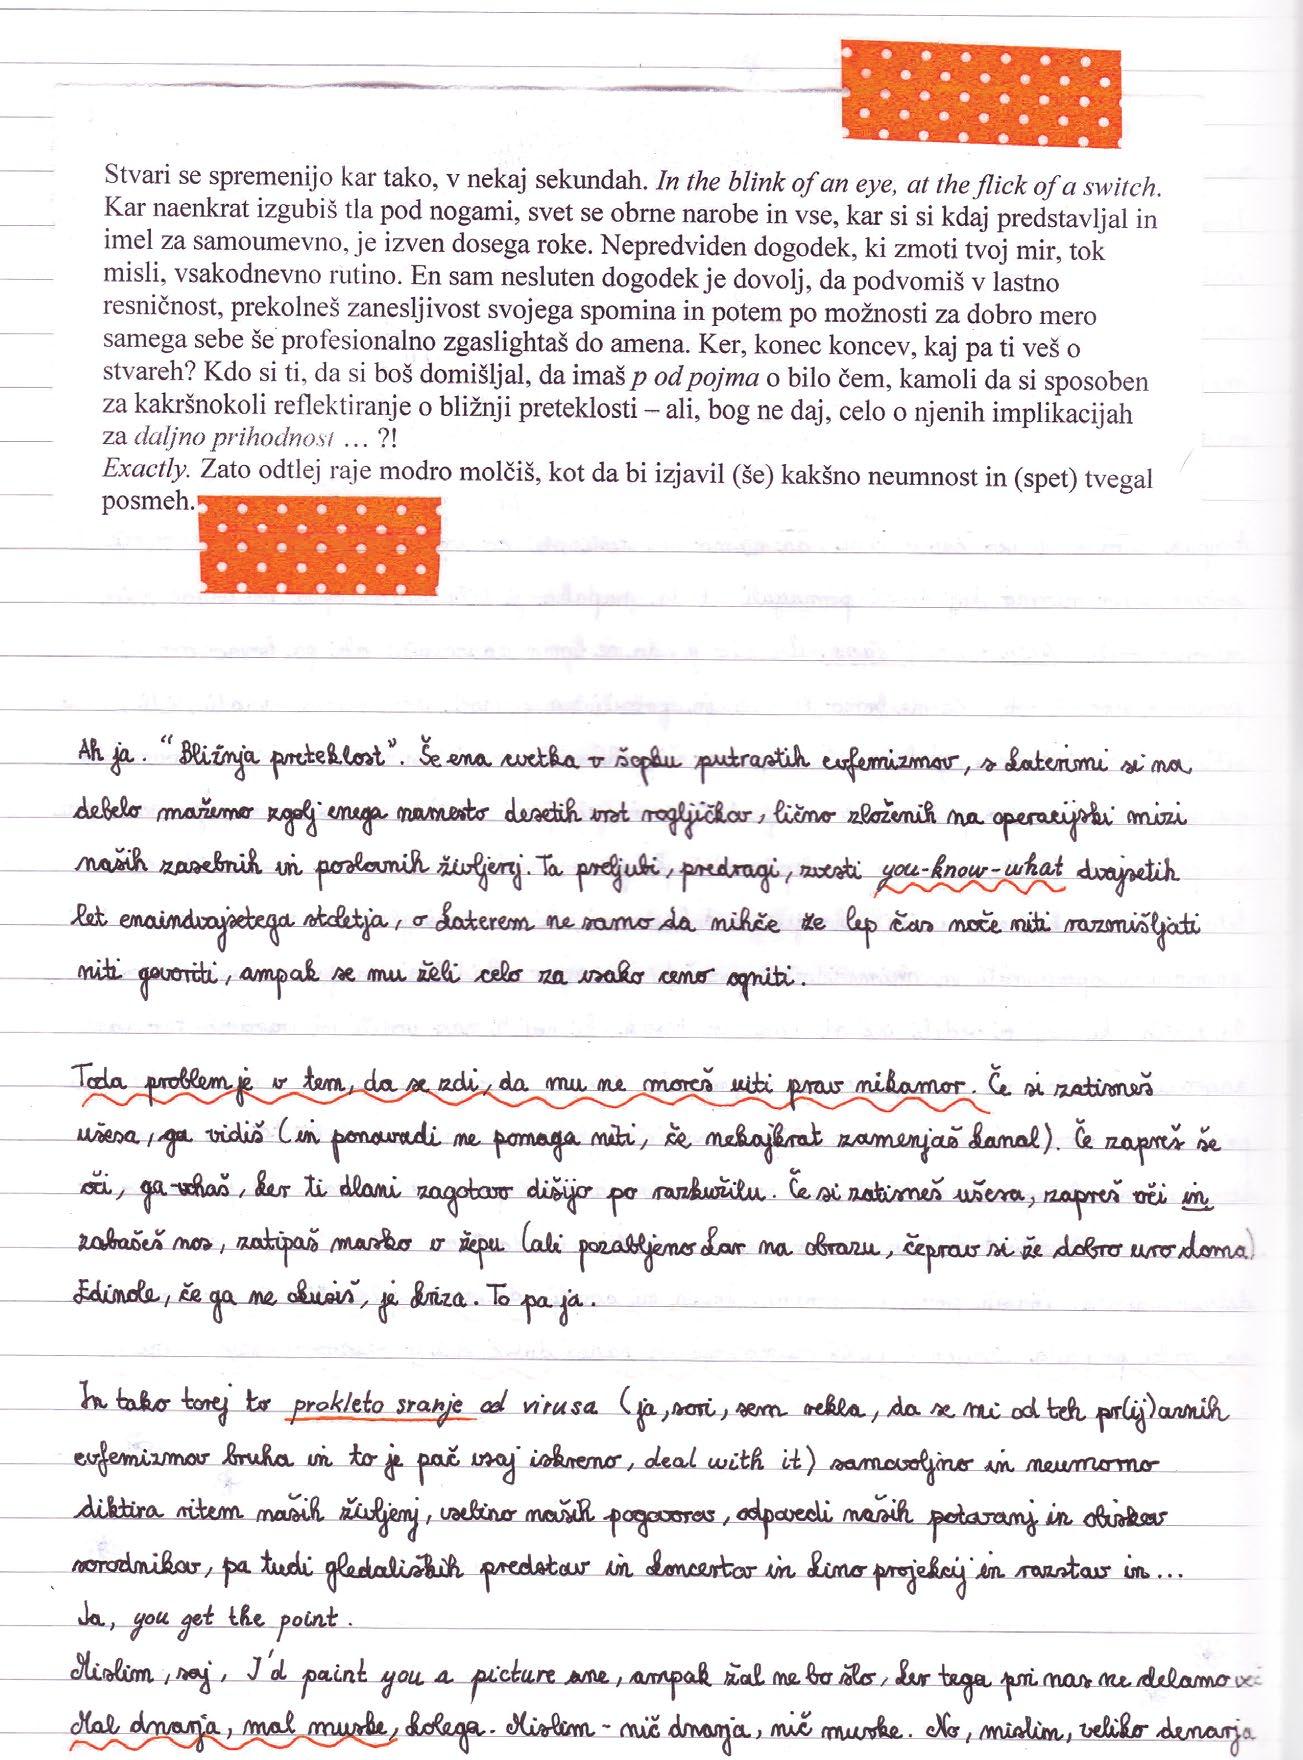 Stvari se spremenijo kar tako, v nekaj sekundah. In the blink of an eye, at the flick of a switch.
Kar naenkrat izgubiš tla pod nogami, svet se obrne narobe in vse, kar si si kdaj predstavljal in
imel za samoumevno, je izven dosega roke. Nepredviden dogodek, ki zmoti tvoj mir, tok
misli, vsakodnevno rutino. En sam nesluten dogodek je dovolj, da podvomiš v lastno
resničnost, prekolneš zanesljivost svojega spomina in potem po možnosti za dobro mero
samega sebe še profesionalno zgaslightaš do amena. Ker, konec koncev, kaj pa ti veš o
stvareh? Kdo si ti, da si boš domišljal, da imaš p od pojma o bilo čem, kamoli da si sposoben
za kakršnokoli reflektiranje o bližnji preteklosti – ali, bog ne daj, celo o njenih implikacijah
za daljno prihodnost … ?!
Exactly. Zato odtlej raje modro molčiš, kot da bi izjavil (še) kakšno neumnost in (spet) tvegal
posmeh.
Ah ja. "Bližnja preteklost". Še ena cvetka v šopku putrastih evfemizmov, s katerimi si na
debelo mažemo zgolj enega namesto desetih vrst rogljičkov, lično zloženih na operacijski mizi
naših zasebnih in poslovnih življenj. Ta preljubi, predragi, zvesti you-know-what dvajsetih
let enaindvajsetega stoletja, o katerem ne samo da nihče že lep čas noče niti razmišljati
niti govoriti, ampak se mu želi celo za vsako ceno ogniti.
Toda problem je v tem, da se zdi, da mu ne moreš uiti prav nikamor. Če si zatisneš
ušesa, ga vidiš (in ponavadi ne pomaga niti, če nekajkrat zamenjaš kanal). Če zapreš še
oči, ga vohaš, ker ti dlani zagotovo dišijo po razkužilu. Če si zatisneš ušesa, zapreš oči in
zabašeš nos, zatipaš masko v žepu (ali pozabljeno kar na obrazu, čeprav si že dobro uro doma)
Edinole, če ga ne okusiš, je kriza. To pa ja.
In tako torej to prokleto sranje od virusa (ja, sori, sem rekla, da se mi od teh pr(ij)aznih
evfemizmov bruha in to je pač vsaj iskreno, deal with it) samovoljno in neumorno
diktira ritem naših življenj, vsebino naših pogovorov, odpovedi naših potovanj in obiskov
sorodnikov, pa tudi gledaliških predstav in koncertov in kino projekcij in razstav in...
Ja, you get the point.
Mislim, saj, I'd paint you a picture ane, ampak žal ne bo šlo, ker tega pri nas ne delamo več
Mal dnarja, mal muske, kolega. Mislim - nič dnarja, nič muske. No, mislim, veliko denarja